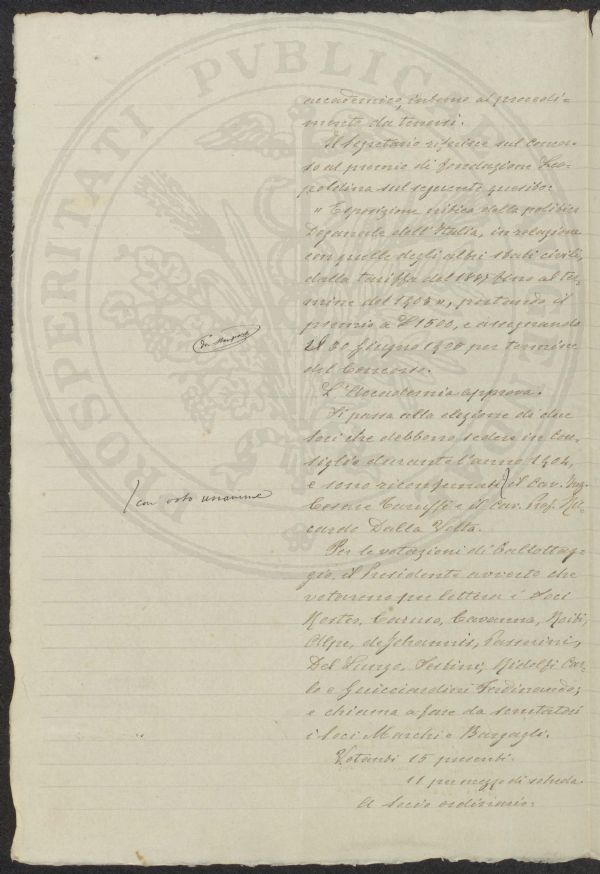 PROSPERITATI PVBLICAE
accademico, intorno al procedi=
mento da tenersi.
Il Segretario riferisce sul concor=
so al premio di fondazione Leo=
poldina sul seguente quesito:
" Esposizione critica della politica
Doganale dell'Italia, in relazione
con quelle degli altri stati civili,
dalla tariffa del 1887 fino al ter=
mine del 1903 ", portando il
premio a £ 1500, e assegnando
il 30 Giugno per termine
del Concorso.
L'Accademia approva.
Si passa alla elezione di due
Soci che debbono sedere in Con=
siglio durante l'anno 1904,
con voto unanime
e sono riconfermati il Cav. Ing.
Cesare e il Cav. Prof. Ric=
cardo Dalla Volta.
Per le votazioni di ballottag=
gio, il Presidente avverte che
votarono per lettera i Soci
Caruso, Cavanna,
Alpe, de Johannis, Passerini,
Del Lungo, Ridolfi Car=
lo e Guicciardini Ferdinando;
e chiama a fare da scrutatori
i Soci Marchi e Bargagli.
Votanti 15 presenti.
11 per mezzo di scheda.
A Socio ordinario: